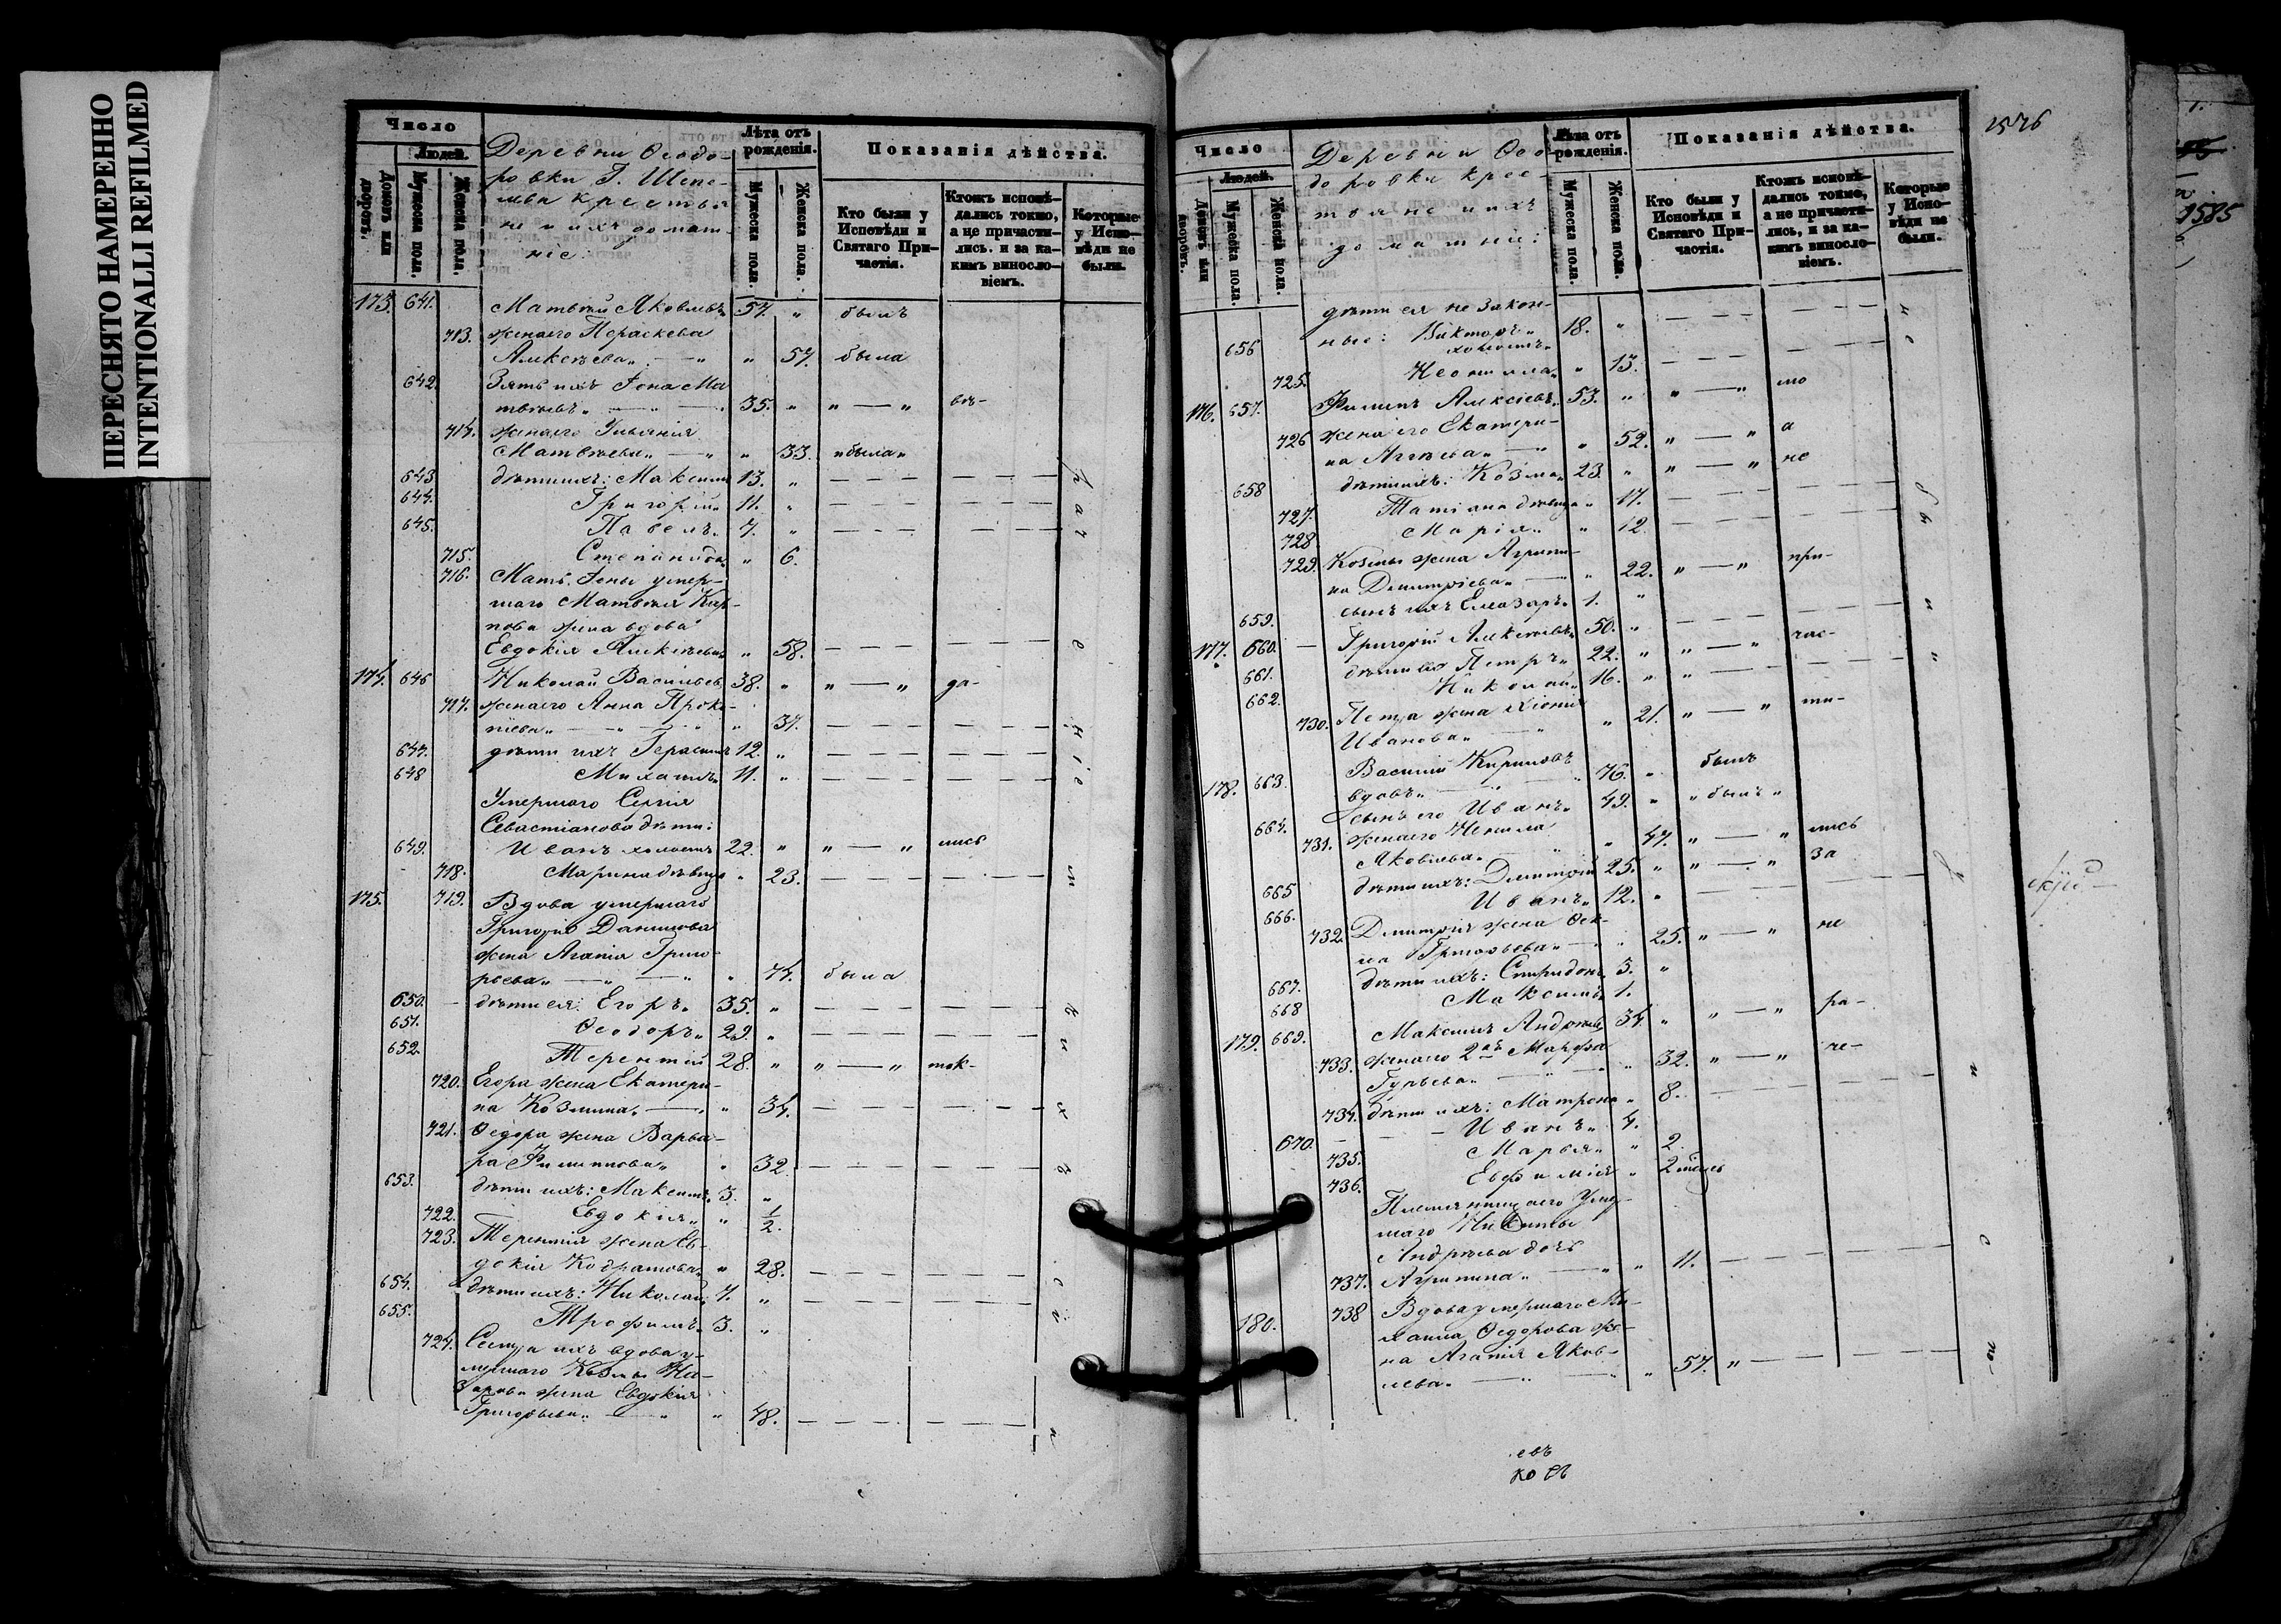 ПЕРЕСНЯТО НАМЕРЕННО
INTENTIONALLI REFILMED
Число
Людей.
Домовъ или дворовъ.
Мужеска пола.
Женска пола.
Деревни Ѳеодо-
ровки Г. Шепе-
лева крестья
не и ихъ домаш-
ніе:
Лѣта отъ рожденія.
Мужеска пола.
Женска пола.
Показанія дѣйства.
Кто были у Исповѣди и Святаго При-частія.
Ктожъ исповѣ-дались токмо, а не причасти-лись. и за ка-кимъ виносло-віемъ.
Которые у Испо-вѣди не были.
173. 641. Матвѣй Яковлевъ 57. " былъ
713. жена его Параскева
Алексѣева " — " " 57. была
642. Зять ихъ Іона Ма
твѣевъ " — " — 35. " " — " въ-
714. жена его Ульянія
Матвѣева " — " " 33. " была "
643 дѣти ихъ: Максимъ 13. " — — — — — —
644. Григорій " 11. " — — — — — —
645. Павелъ " 7. " — — — — — —
715. Степанида " " 6.
716. Мать Іоны умер-
шаго Матвѣя Кар-
пова жена вдова
Евдокія Алексѣева " 58. — — — — — —
174. 646 Николай Васильевъ 38. " " — " да-
717. жена его Анна Проко-
піева " — " — " " 37. — — — — — —
647. дѣти ихъ Герасимъ 12. " — — — — — —
648 Михаилъ " 11. " — — — — — —
Умершаго Сергія
Севастіанова дѣти:
649. Иванъ холостъ 22. " " — " лись
718. Марина дѣвица " 23. — — — — — —
175. 719. Вдова умершаго
Григорія Данилова
жена Агапія Григо-
рьева " — " — " " 74. была
650 — дѣти ея: Егоръ " 35. " — — — — — —
651. Ѳеодоръ " 29. " — — — — — —
652. Терентій 28. " " — " ток-
720. Егора жена Екатери-
на Козмина " — " " 34. — — — — — —
721. Ѳедора жена Варва-
ра Филиппова " " 32 — — — — — —
653. дѣти ихъ: Максимъ 3. "
722. Евдокія " " 1/2.
723. Терентія жена Ев-
докія Кодратова " " 28. — — — — — —
654. дѣти ихъ: Николай 7. " — — — — — —
655. Трофимъ 3. "
724. Сестра ихъ вдова у-
мершаго Козмы На-
зарова жена Евдокія
Григорьева " — " " 48. — — — — — —
1576
Число
Людей.
Домовъ или дворовъ.
Мужеска пола.
Женска пола.
Деревни Ѳео-
доровки крес-
тьяне и ихъ
домашніе:
Лѣта отъ рожденія.
Мужеска пола.
Женска пола.
Показанія дѣйства.
Кто были у Исповѣди и Святаго При-частія.
Ктожъ исповѣ-дались токмо, а не причасти-лись, и за ка-кимъ винослo-віемъ.
Которые у Испо-вѣди не были.
дѣти ея не закон-
656 ные: Викторъ " 18. " — — — — — —
холостъ "
725. Неонила " " 13. — — — — — —
176. 657. Филипъ Алексѣевъ 53. " " — " мо
726 жена его Екатери-
на Аггѣева " — " " 52. " — " а
658 дѣти ихъ: Козма 23 " " — " не
727. Татіана дѣвица " 17. — — — — — —
728 Марія " " 12. — — — — — —
729. Козмы жена Агрипи-
на Димитріева " — " " 22. " — " при-
659. сынъ ихъ Елеазаръ 1. "
177. 660. — Григорій Алексѣевъ 50. " — — — — — —
661. дѣти его Петръ " 22. " " — " час-
662. Николай " 16. " " — — — — —
730. Петра жена Хіонія
Иванова " — " " 21. " — " ти-
178. 663. Василій Кириловъ
вдовъ " — " — " 76. " былъ
664. сынъ его Иванъ " 49. " " былъ "
731. жена его Ненила
Яковлева " — " " 47. " — " лись
665 дѣти ихъ: Димитрій 25. " " — " за
666. Иванъ " 12. " — — — — — —
732. Димитрія жена Ѳек-
ла Григорьева " — " " 25. " — " не
667. дѣти ихъ: Спиридонъ 3. "
668 Максимъ 1.
179. 669. Максимъ Андреевъ 34. " " — " ра-
733. жена его 2я Марѳа
Гурьева " — " — " 32. " — " че-
734. дѣти ихъ: Матрона " 8. — — — — — —
670. Иванъ " 4.
735. Марья " " 2.
736. Евфимія " 2 мѣсяц
Племянница его Умер-
шаго Никиты
Андрѣева дочь
737. Агрипина " — " " 11. — — — — — —
180. 738 Вдова умершаго Ми-
хаила Ѳедорова же-
на Агапія Яков-
лева " — " — " " 57. " — — — — —